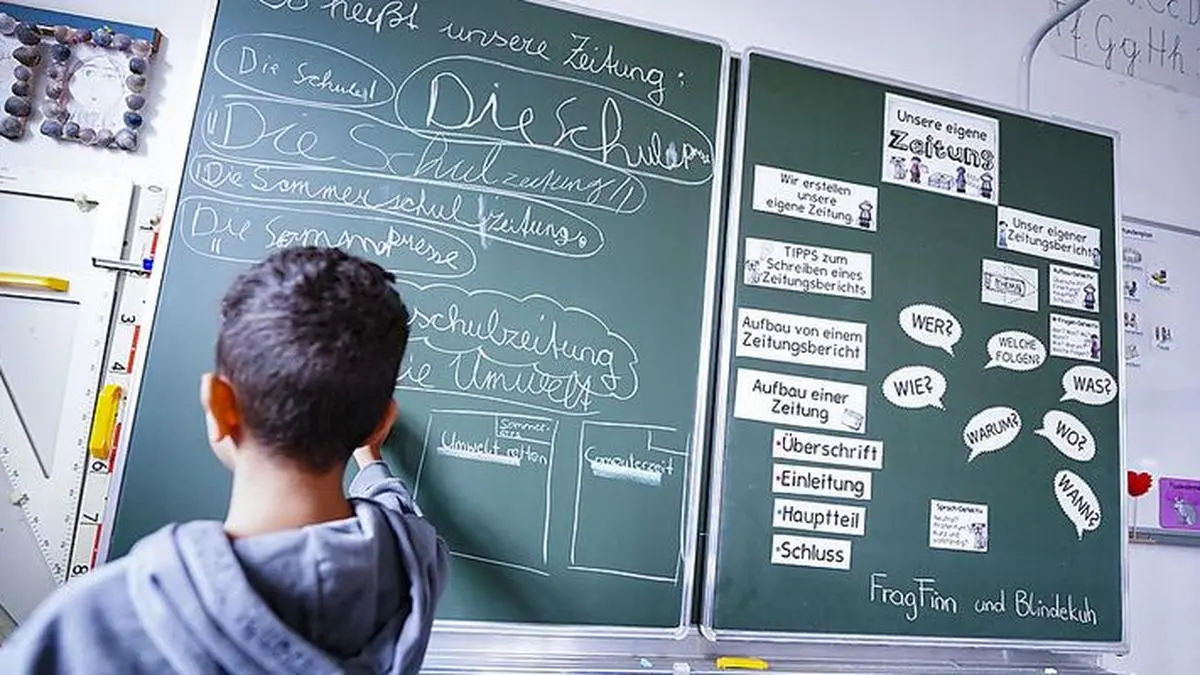 So heißt unsere Zeitung:
Die Schulest
Die Schulpresse
"Die Schulzeitung"
"Die Sommerschulzeitung"
Die Sommpresse
schulzeitung
Die Umwelt
Umwelt retten
Computerzeit
Unsere eigene
Zeitung
Wir erstellen
unsere
eigene Zeitung
Unser eigener
Zeitungsbericht
TIPPS zum
Schreiben eines
Zeitungsberichts
THEMA
Aufbau von einem
Zeitungsbericht
WER?
WELCHE
FOLGEN?
WIE?
WAS?
Aufbau einer
Zeitung
WARUM?
WO?
WANN?
•Überschrift
•Einleitung
•Hauptteil
•Schluss
Sprach-Detektiv
FragFinn und Blindekuh
Gg Hh
3
4
6
7
8